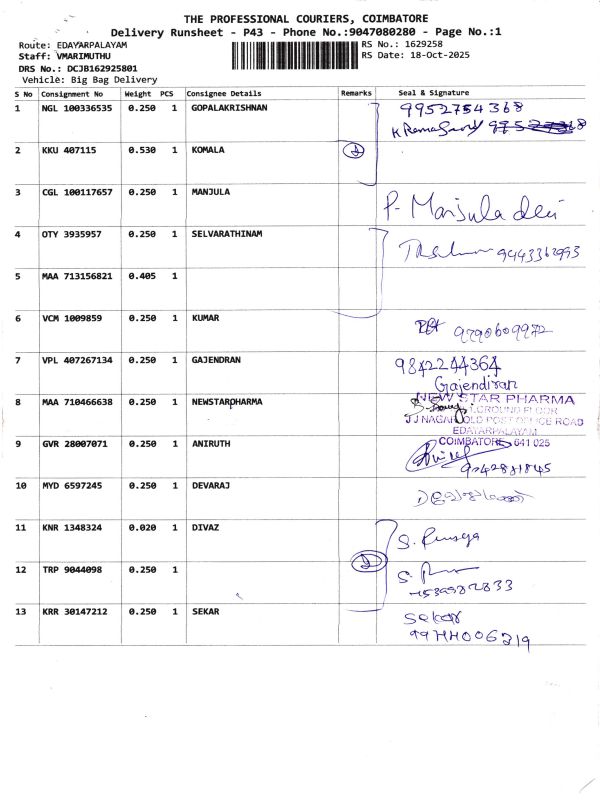 THE PROFESSIONAL COURIERS, COIMBATORE
Delivery Runsheet - P43 - Phone No.:9047080280 - Page No.:1
Route: EDAYARPALAYAM
RS No.: 1629258
Staff: VMARIMUTHU
RS Date: 18-Oct-2025
DRS No.: DCJB162925801
Vehicle: Big Bag Delivery
S No Consignment No Weight PCS Consignee Details Remarks Seal & Signature
1 NGL 100336535 0.250 1 GOPALAKRISHNAN 9952754368
2 KKU 407115 0.530 1 KOMALA 2
3 CGL 100117657 0.250 1 MANJULA P. Manjula devi
4 OTY 3935957 0.250 1 SELVARATHINAM 9443362993
5 MAA 713156821 0.405 1
6 VCM 1009859 0.250 1 KUMAR 9790609972
7 VPL 407267134 0.250 1 GAJENDRAN 9842244364
Gajendiran
8 MAA 710466638 0.250 1 NEWSTARPHARMA NEW STAR PHARMA
GROUND FLOOR
JJ NAGAR, OLD POST OFFICE ROAD
EDAYARPALAYAM
COIMBATORE - 641 025
9 GVR 28007071 0.250 1 ANIRUTH
9042881845
10 MYD 6597245 0.250 1 DEVARAJ
11 KNR 1348324 0.020 1 DIVAZ
12 TRP 9044098 0.250 1 2
13 KRR 30147212 0.250 1 SEKAR Sekar